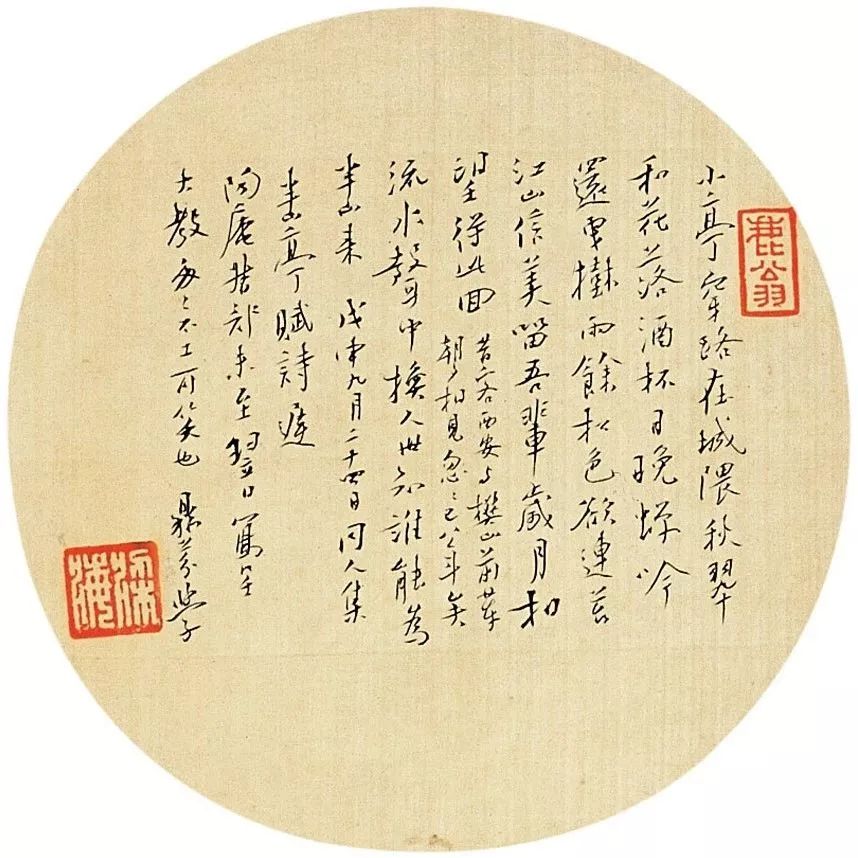 小亭穿路在城隈秋翠
和花落酒杯日晚蟬吟
還曳樹雨餘松色欲連苔
江山信美留吾輩歲月相
望得此回
昔客西安与樊山前輩
朝夕相見忽忽已八年矣
流水聲中換人世知誰能為
半山来 戊申九月二十四日同人集
半山亭賦詩遲
陶庵未至翌日寫呈
大教不工可笑也
鹿翁